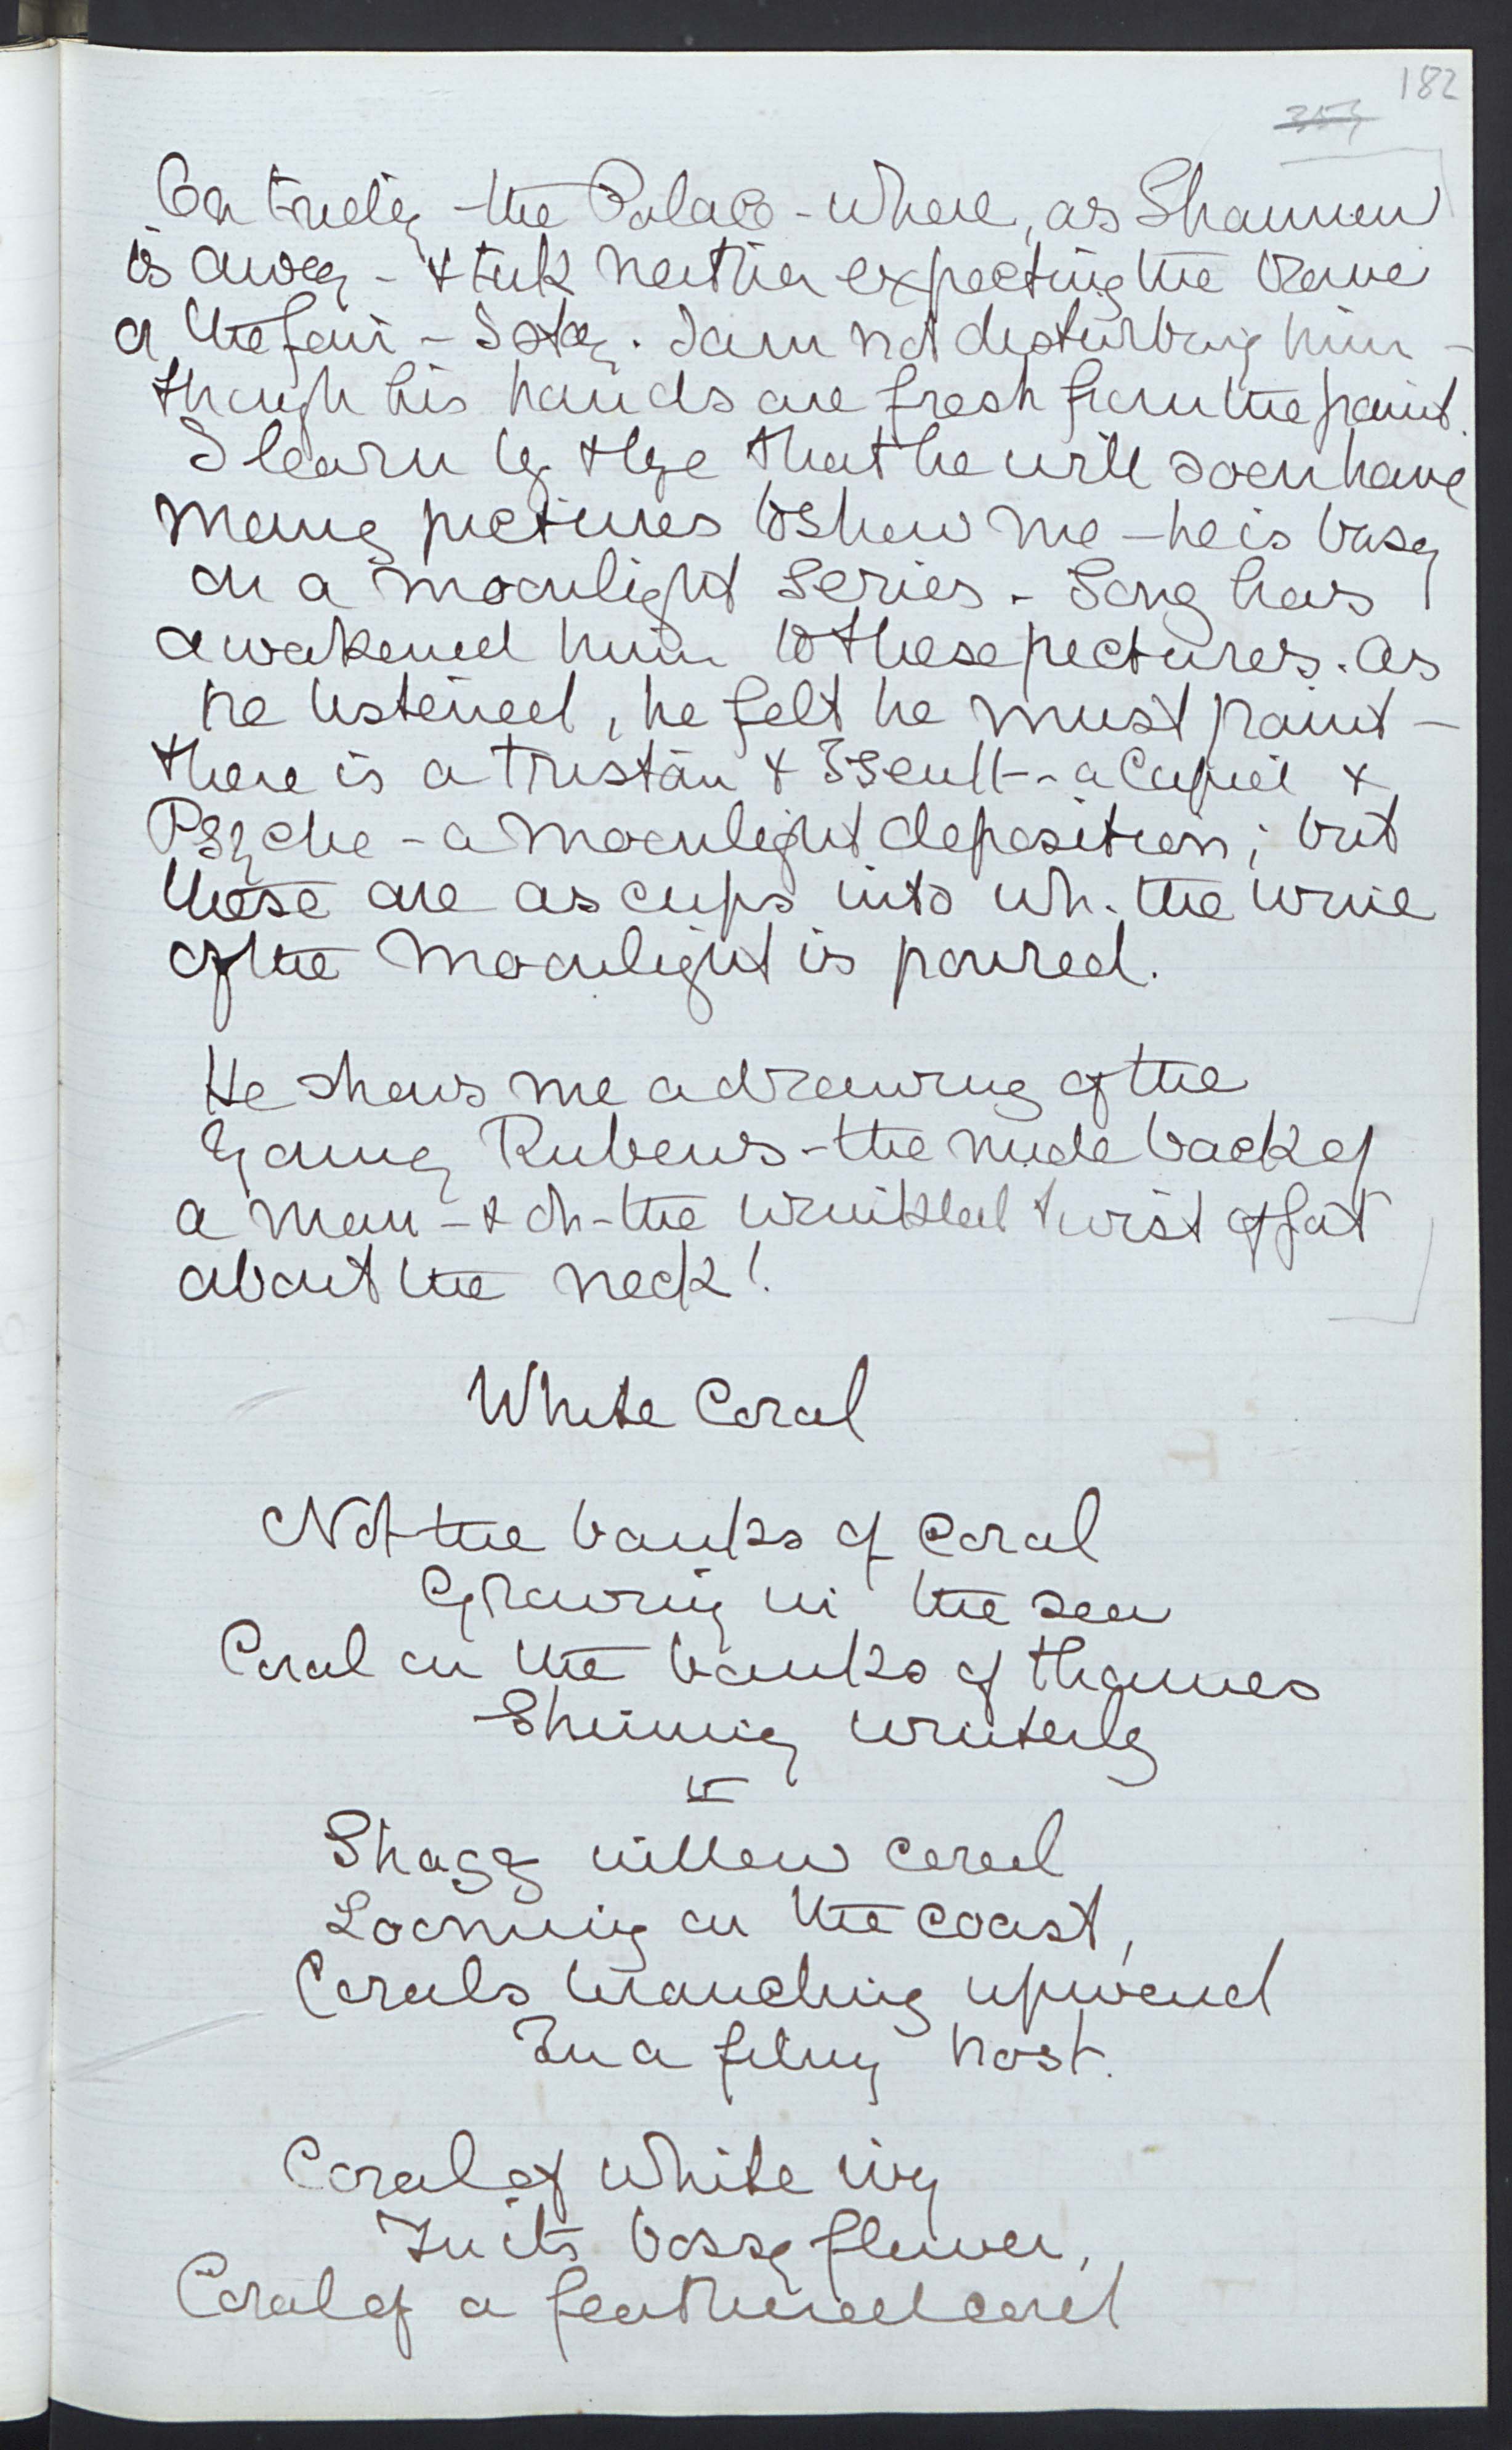 182
On truly the Palace - where, as Shannon
is away - & tuk neither expecting the brave
a the fair - I stay. I am not disturbing him -
though his hands are fresh from the paint.
I learn by & bye that he will soon have
many pictures to show me - he is busy
on a moonlight series - Song has
awakened him to these pictures. As
he listened, he felt he must paint -
there is a Tristan & Iseult - a Cupid &
Psyche - a moonlight deposition; but
these are as cups into wh. the wine
of the moonlight is poured.
He shows me a drawing of the
Young Rubens - the nude back of
a man - & oh - the wrinkled twist of fat
about the neck!
White Coral
Not the banks of coral
Growing in the sea
Coral on the banks of Thames
Shining winterly
Shagg willow coral
Looming on the coast,
Corals branching upward
In a filmy host.
Coral of white ivy
In its bossy flower,
Coral of a feathered